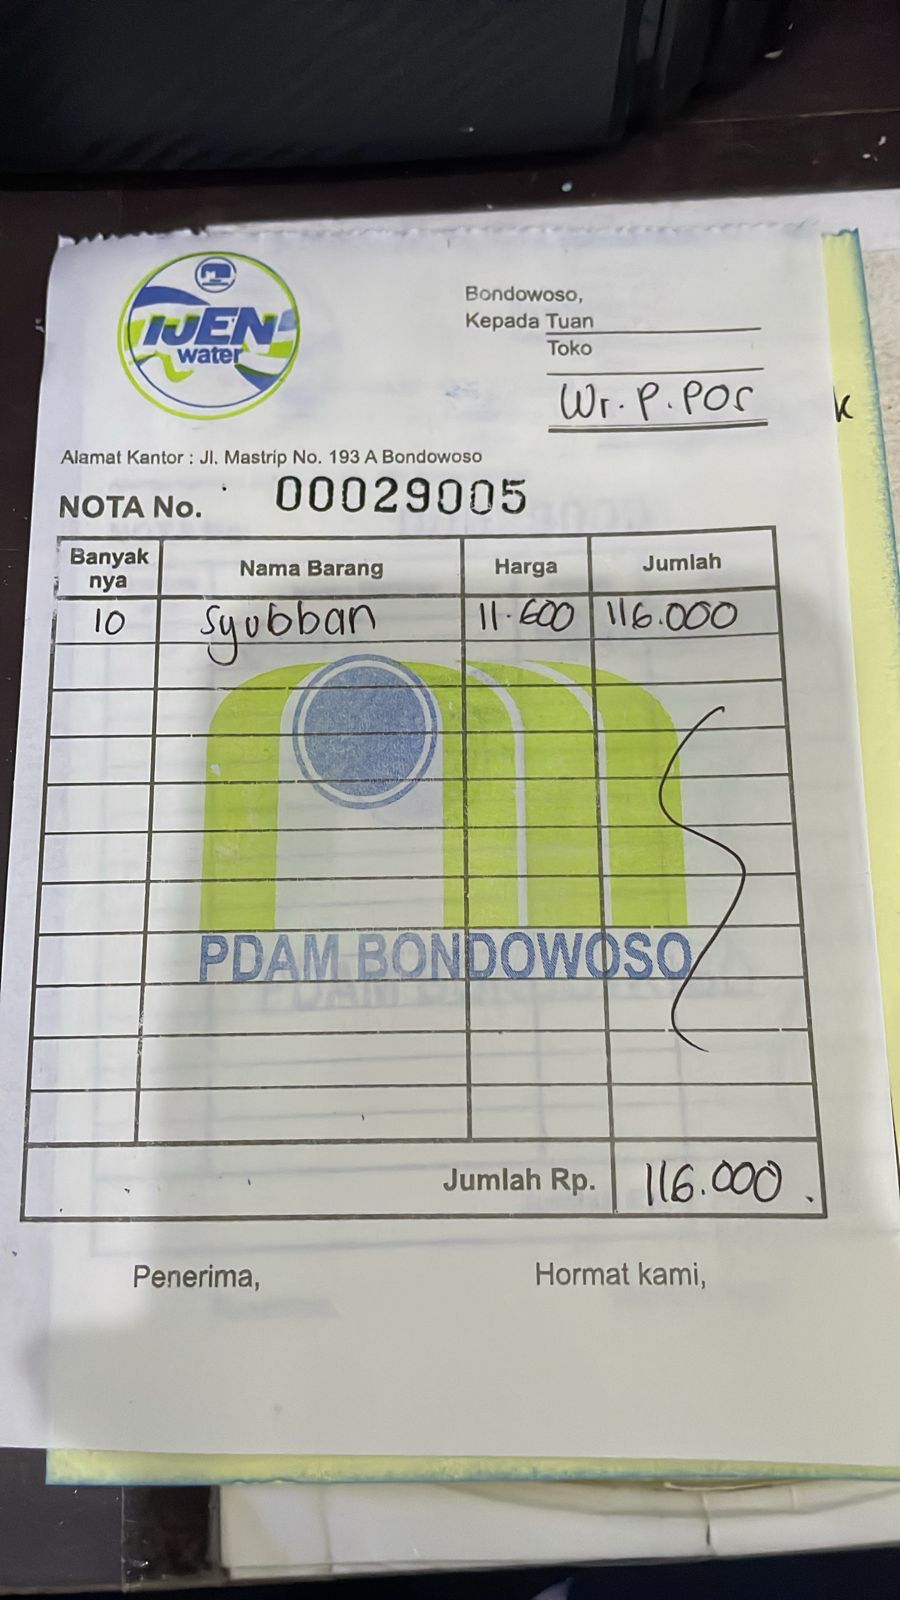 IJEN
water
Bondowoso,
Kepada Tuan
Toko
Wr. P. POS
k
Alamat Kantor : Jl. Mastrip No. 193 A Bondowoso
NOTA No. 00029005
Banyak nya Nama Barang Harga Jumlah
10 Syubban 11.600 116.000
PDAM BONDOWOSO
Jumlah Rp. 116.000
Penerima, Hormat kami,